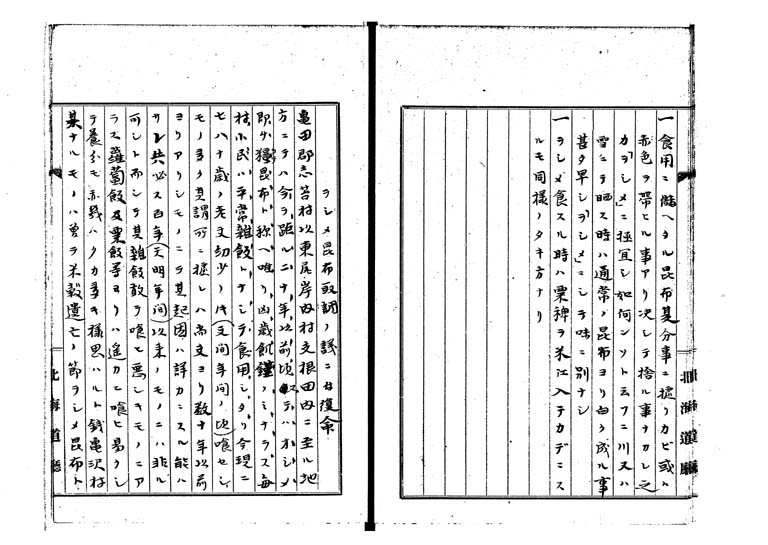 一食用ニ備ヘタル昆布夏分事ニ據リカビ或ハ
赤色ヲ帯ヒル事アリ决シテ捨ル事ナカレ之
カヲシメニ極宜シ如何ソト云フニ川又ハ
雪ニテ晒ス時ハ通常ノ昆布ヨリ白ク成ル事
甚タ早シヲシメニシテ味ニ別ナシ
一ヲシメ食スル時ハ粟稗ヲ米江入テカテニス
ルモ同様ノタキ方ナリ
ヲシメ昆布取調ノ議ニ付復命
亀田郡志苔村以東尾岸内村支根田内ニ至ル地
方ニテハ今ヲ距ル二十年以前頃マテハオシメ
即チ糧昆布ト称ヘ唯リ凶歳飢饉ノミナラズ毎
村小民ハ平常雑飯トナシテ食用シタリ今現ニ
七八十歳ノ老父幼少ノ時(文間年間ノ頃)喰セシ
モノ多ク其謂所ニ據レハ尚文ヨリ数十年以前
ヨリアリシモノニテ其起因ハ詳カニスル能ハ
サレ共必ス百年(天明年間)以来ノモノニハ非ル
可シト而シテ其雑飯敢テ喰ヒ悪シキモノニア
ラス蘿蔔飯及粟飯等ヨリハ遙カニ喰ヒ易クシ
テ養分モ亦幾ハクカ多キ様思ハルト銭亀沢村
某ナルモノハ曽テ米穀遣モノ節ヲシメ昆布ト
北海道廳
北海道廳